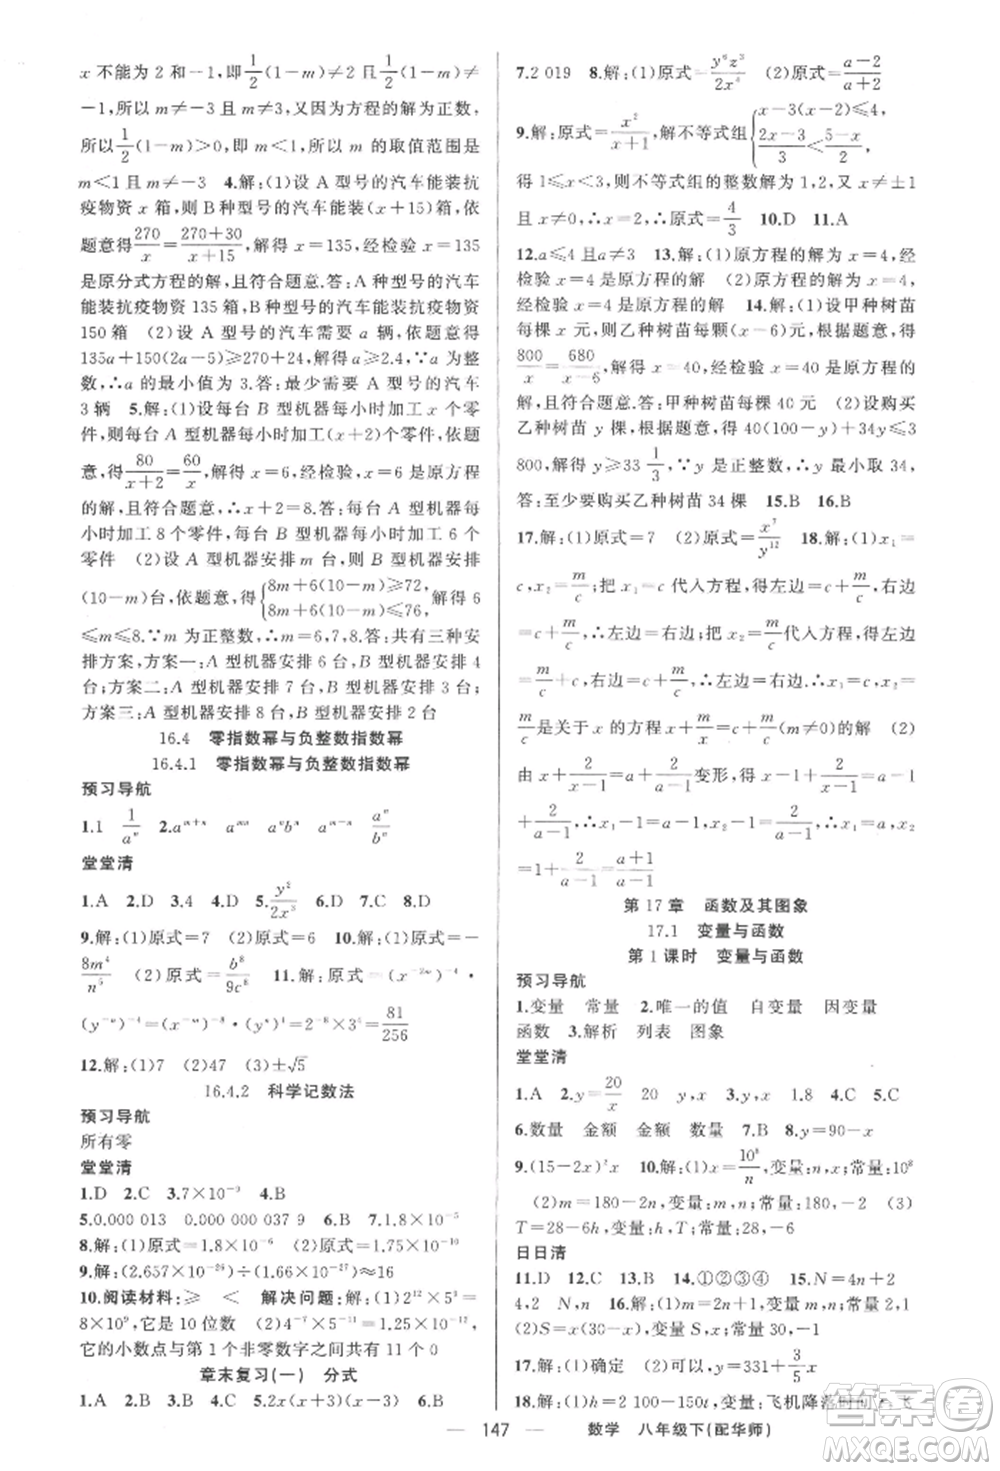 x 不能为 2 和 −1, 即 1/2(1−m)≠2 且 1/2(1−m)≠
−1, 所以 m≠−3 且 m≠3, 又因为方程的解为正数,
所以 1/2(1−m)>0, 解得 m<1, 所以 m 的取值范围是
m<1 且 m≠−3 4.解:(1)设 A 型号的汽车能装抗
疫物资 x 箱, 则 B 种型号的汽车能装 (x+15) 箱, 依
题意得 270/x = (270+30)/(x+15), 解得 x=135, 经检验, x=135
是原分式方程的解, 且符合题意. 答: A 种型号的汽车
能装抗疫物资 135 箱, B 种型号的汽车能装抗疫物资
150 箱 (2)设 A 型号的汽车需要 a 辆, 依题意得
135a+150(2a−5)≥270+24, 解得 a≥2.4, ∵a 为整
数, ∴a 的最小值为 3. 答: 最少需要 A 型号的汽车
3 辆 5.解:(1)设每台 B 型机器每小时加工 x 个零
件, 则每台 A 型机器每小时加工 (x+2) 个零件, 依题
意, 得 80/(x+2) = 60/x, 解得 x=6, 经检验, x=6 是原方程的
解, 且符合题意, ∴x+2=8. 答: 每台 A 型机器每
小时加工 8 个零件, 每台 B 型机器每小时加工 6 个
零件 (2)设 A 型机器安排 m 台, 则 B 型机器安排
(10−m)台, 依题意, 得 {8m+6(10−m)≥72, 8m+6(10−m)≤76, 解得 6
≤m≤8. ∵m 为正整数, ∴m=6,7,8. 答: 共有三种安
排方案, 方案一: A 型机器安排 6 台, B 型机器安排 4
台; 方案二: A 型机器安排 7 台, B 型机器安排 3 台;
方案三: A 型机器安排 8 台, B 型机器安排 2 台
16.4 零指数幂与负整数指数幂
16.4.1 零指数幂与负整数指数幂
预习导航
1.1 1/aⁿ 2.aᵐ⁺ⁿ aᵐⁿ aⁿbⁿ aᵐ⁻ⁿ aⁿ/bⁿ
堂堂清
1.A 2.D 3.4 4.D 5.y²/2x³ 6.D 7.C 8.D
9.解:(1)原式=7 (2)原式=7 10.解:(1)原式=−
8m⁴/n⁵ (2)原式=b⁸/9c⁸ 11.解:原式=
12.解:(1)7 (2)47 (3)±√5
16.4.2 科学记数法
预习导航
所有零
堂堂清
1.D 2.C 3.7×10⁻⁹ 4.B
5.0.000 013 0.000 000 037 9 6.B 7.1.8×10⁻⁵
8.解:(1)原式=1.8×10⁻⁶ (2)原式=5.4×10⁻¹⁰
9.解:(2.657×10⁻²⁶)÷(1.67×10⁻²⁷)≈16
10.阅读材料:≥ < 解决问题:解:(1)2¹²×5¹⁰=
8×10⁹, 它是 10 位数 (2)4⁻⁷×5⁻¹²=
它的小数点与第 1 个非零数字之间共有 11 个 0
章末复习(一) 分式
1.A 2.B 3.A 4.C 5.2x(x+3)(x−3) 6.B
7.2 019 8.解:(1)原式=y⁶z³/2x⁴ (2)原式=(a−2)/(a+2)
9.解:原式=x²/(x+1), 解不等式组 {x−3(x−2)≤4, (2x−3)/3<(5−x)/3,
得 1≤x<3, 则不等式组的整数解为 1,2, 又 x≠±1
且 x≠0, ∴x=2, ∴原式=4/3 10.D 11.A
12.a≤4 且 a≠3 13.解:(1)原方程的解为 x=4, 经
检验 x=4 是原方程的解 (2)原方程的解为 x=4,
经检验 x=4 是原方程的解 14.解:(1)设甲种树苗
每棵 x 元, 则乙种树苗每颗(x−6)元, 根据题意, 得
800/x = 680/(x−6), 解得 x=40, 经检验 x=40 是原方程的解,
且符合题意. 答: 甲种树苗每棵 40 元 (2)设购买
乙种树苗 y 棵, 根据题意, 得 40(100−y)+34y≤3
800, 解得 y≥33 1/3, ∵y 是整数, ∴y 最小取 34,
答: 至少要购买乙种树苗 34 棵 15.B 16.B
17.解:(1)原式=7 (2)原式=x⁷/y¹² 18.解:(1)x₁=
c, x₂=m/c; 把 x₁=c 代入方程, 得左边=c+m/c, 右边
=c+m/c, ∴左边=右边; 把 x₂=m/c 代入方程, 得左边
=m/c+c, 右边=c+m/c, ∴左边=右边, ∴x₁=c, x₂=
m/c 是关于 x 的方程 x+m/x=c+m/c (m≠0) 的解 (2)
由 x+2/(x−1)=a+2/(a−1) 变形, 得 x−1+2/(x−1)=a−1
+2/(a−1), ∴x₁−1=a−1, x₂−1=2/(a−1), ∴x₁=a, x₂
=1+2/(a−1)=(a+1)/(a−1)
第 17 章 函数及其图象
17.1 变量与函数
第 1 课时 变量与函数
预习导航
1.变量 常量 2.唯一的值 自变量 因变量
函数 3.解析 列表 图象
堂堂清
1.A 2.y=20/x 20 y,x x 1.8 4.C 5.C
6.数量 金额 金额 数量 7.B 8.y=90−x
9.(15−2x)² 10.解:(1)x=10⁸/n, 变量:n,x; 常量:10⁸
(2)m=180−2n, 变量:m,n; 常量:180,−2 (3)
T=28−6h, 变量:h,T; 常量:28,−6
日日清
11.D 12.C 13.D 14.①②③④ 15.N=4n+2
4,2 N,n 16.解:(1)变量:m,x; 常量:2,1
(2)S=x(30−x)
17.解:(1)确定 (2)可以, y=331+3/5x
18.解:(1)h=2 100−150t, 变量:h,t; 飞机降落时间
147 数学 八年级下(配华师)